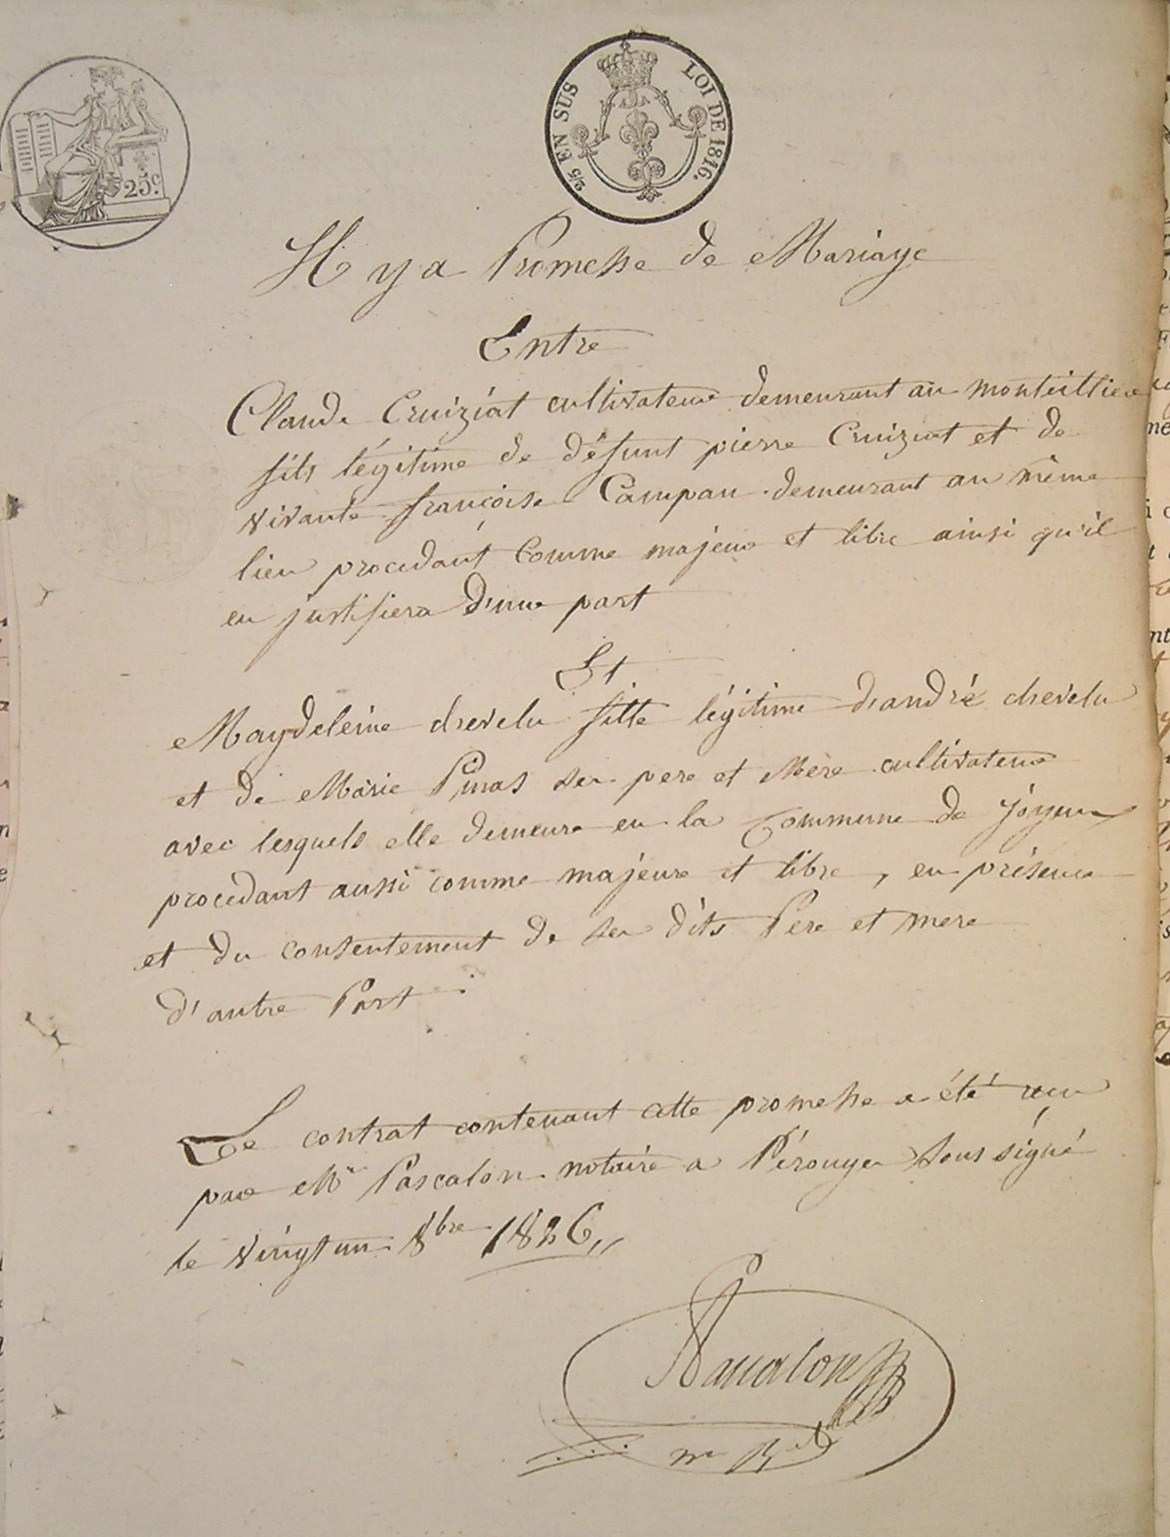 25c.
2/5 EN SUS LOI DE 1816.
Il y a Promesse de Mariage
Entre
Claude Cruiziat cultivateur demeurant au monteillier
fils légitime de défunt pierre Cruiziat et de
vivante françoise Campan demeurant au même
lieu procedant comme majeur et libre ainsi qu'il
en justifiera d'une part
Et
Magdeleine chevelu fille légitime d'andré chevelu
et de Marie Pinas ses pere et Mere cultivateurs
avec lesquels elle demeure en la Commune de Joyeux
procedant aussi comme majeure et libre, en présence
et du consentement de ses dits Pere et mere
d'autre Part.
Le contrat contenant cette promesse a été reçu
par Me Pascalon notaire a Pérouges soussigné
le vingt un 8bre 1826
Pascalon